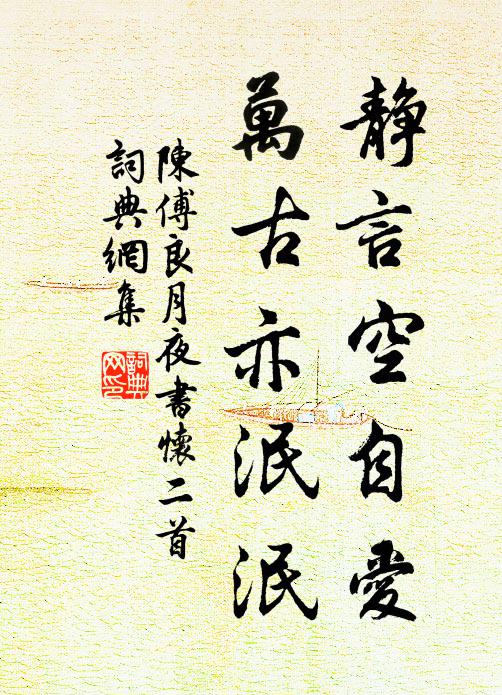 靜言空自愛
萬古亦泯泯
陳傅良月夜書懷二首
詞典網集
詞典网印